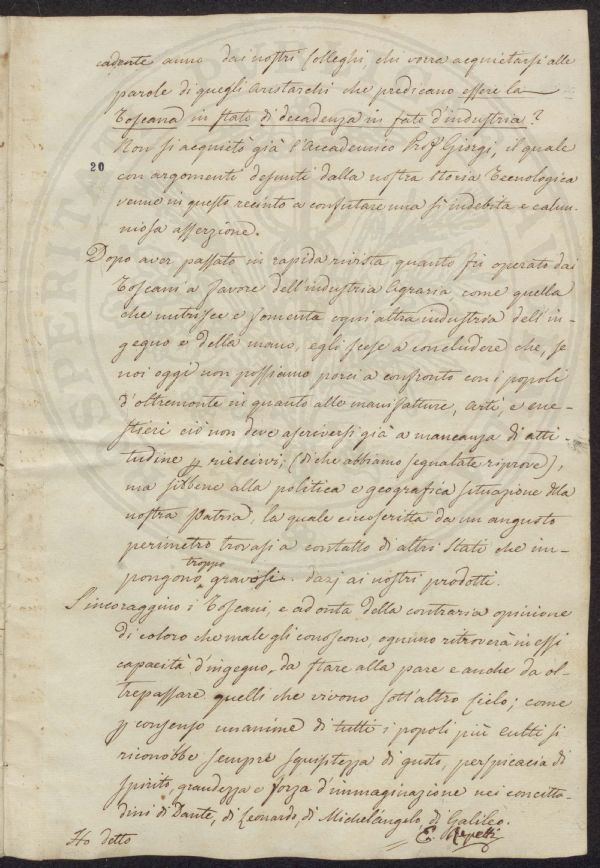 cadente anno dai nostri Colleghi, chi vorrà acquietarsi alle
parole di quegli Aristarchi che predicano essere la
Toscana in stato di decadenza in fate d'industria?
Non si acquietò già l'Accademico Prof. Giorgi, il quale
20
con argomenti desunti dalla nostra storia Tecnologica
venne in questo recinto a confutare una sì indebita e calun-
niosa asserzione.
Dopo aver passato in rapida rivista quanto fu operato dai
Toscani a favore dell'industria Agraria come quella
che nutrisce e fomenta ogni altra industria dell'in-
gegno e della mano, egli scese a concludere che, se
noi oggi non possiamo porci a confronto con i popoli
d'oltremonte in quanto alle manifatture, arti, e me-
stieri ciò non deve ascriversi già a mancanza di atti-
tudine p riescirvi, (di che abbiamo segnalate riprove),
ma sibbene alla politica e geografica situazione della
nostra Patria, la quale circoscritta da un angusto
perimetro trovasi a contatto di altri Stati che im-
troppo
pongono gravosi.. dazj ai nostri prodotti.
S'incoraggino i Toscani, e ad onta della contraria opinione
di coloro che male gli conoscono, ognuno ritroverà in essi
capacità d'ingegno, da stare alla pare e anche da ol-
trepassare quelli che vivono sott'altro Cielo; come
p consenso unanime di tutti i popoli più culti si
riconobbe sempre squisitezza di gusto, perspicacia di
spirito, grandezza e forza d'immaginazione nei concitta-
dini di Dante, di Leonardo, di Michelangelo di Galileo.
Ho detto
E. Repetti